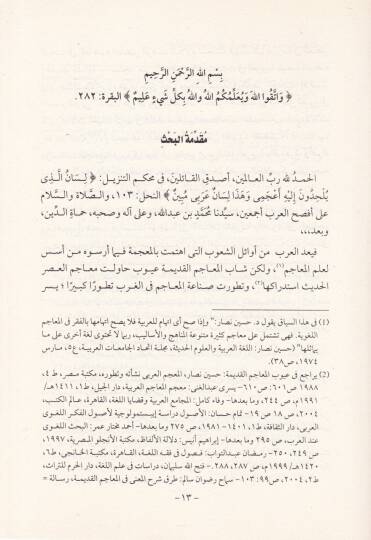 بِسْمِ اللهِ الرَّحْمَنِ الرَّحِيمِ
﴿ وَاتَّقُوا اللهَ وَيُعَلِّمُكُمُ اللهُ وَاللهُ بِكلِّ شَيْءٍ عَلِيمٌ ﴾ البقرة: ٢٨٢.
مُقدِّمَةُ البَحْثِ
الحمدُ لله ربِّ العالمين، أصدقِ القائلين، في محكم التنزيل: ﴿ لِسَانُ الَّذِى
يُلْحِدُونَ إِلَيْهِ أَعْجَمِى وَهَذَا لِسَانٌ عَرَبِى مُبِينٌ ﴾ النحل: ١٠٣، والصَّلاة والسَّلام
على أفصح العرب أجمعين، سيِّدنا مُحمَّدٍ بن عبدالله، وعلى آله وصحبه، حماةِ الدِّين،
وبعد،،،
فيعد العرب من أوائل الشعوب التى اهتمت بالمعجمة فيما أرسوه من أسس
لعلم المعاجم(١)، ولكن شاب المعاجم القديمة عيوب حاولت معاجم العصر
الحديث استدراكها(٢)، وتطورت صناعة المعاجم فى الغرب تطورًا كبيرًا؛ يسر
(١) فى هذا السياق يقول د. حسين نصار: "وإذا صح أى اتهام للعربية فلا يصح اتهامها بالفقر فى المعاجم
اللغوية. فهى تشتمل على معاجم كثيرة متنوعة المناهج والأساليب، ربما لا تحتوى لغة أخرى على ما
يماثلها" (حسين نصار: اللغة العربية والعلوم الحديثة، مجلة اتحاد الجامعات العربية، ع٥، مارس
١٩٧٤، ص٣٨).
(2) يراجع فى عيوب المعاجم القديمة: حسين نصار، المعجم العربى نشأته وتطوره، مكتبة مصر، ط ٤،
١٩٨٨ ص٦٠١: ص٦١٠– يسرى عبدالغنى: معجم المعاجم العربية، دار الجيل، ط١، ١٤١١هـ/
١٩٩١م، ص٢٤٤، وما بعدها– وفاء كامل: المجامع العربية وقضايا اللغة، القاهرة، عالم الكتب،
٢٠٠٤، ص١٨ ص١٩– تمام حسان: الأصول دراسة إيبستمولوجية لأصول الفكر اللغوى
العربى، دار الثقافة، ط١، ١٤٠١– ١٩٨١، ص ٢٧٥ وما بعدها– أحمد مختار عمر: البحث اللغوى
عند العرب، ص ٢٩٥ وما بعدها– إبراهيم أنيس: دلالة الألفاظ، مكتبة الأنجلو المصرية، ١٩٩٧،
ص ٢٤٩، ٢٥٠– رمضان عبدالتواب: فصول فى فقه اللغة، القاهرة، مكتبة الخانجى، ط٦،
١٤٢٠هـ/ ١٩٩٩م، ص ٢٨٧، ٢٨٨– فتح الله سليمان، دراسات فى علم اللغة، دار الحرم للتراث،
ط٢، ٢٠٠٤، ص٩٩: ١٠٣– سماح رضوان سالم: طرق شرح المعنى فى المعاجم القديمة، رسالة =
–١٣–